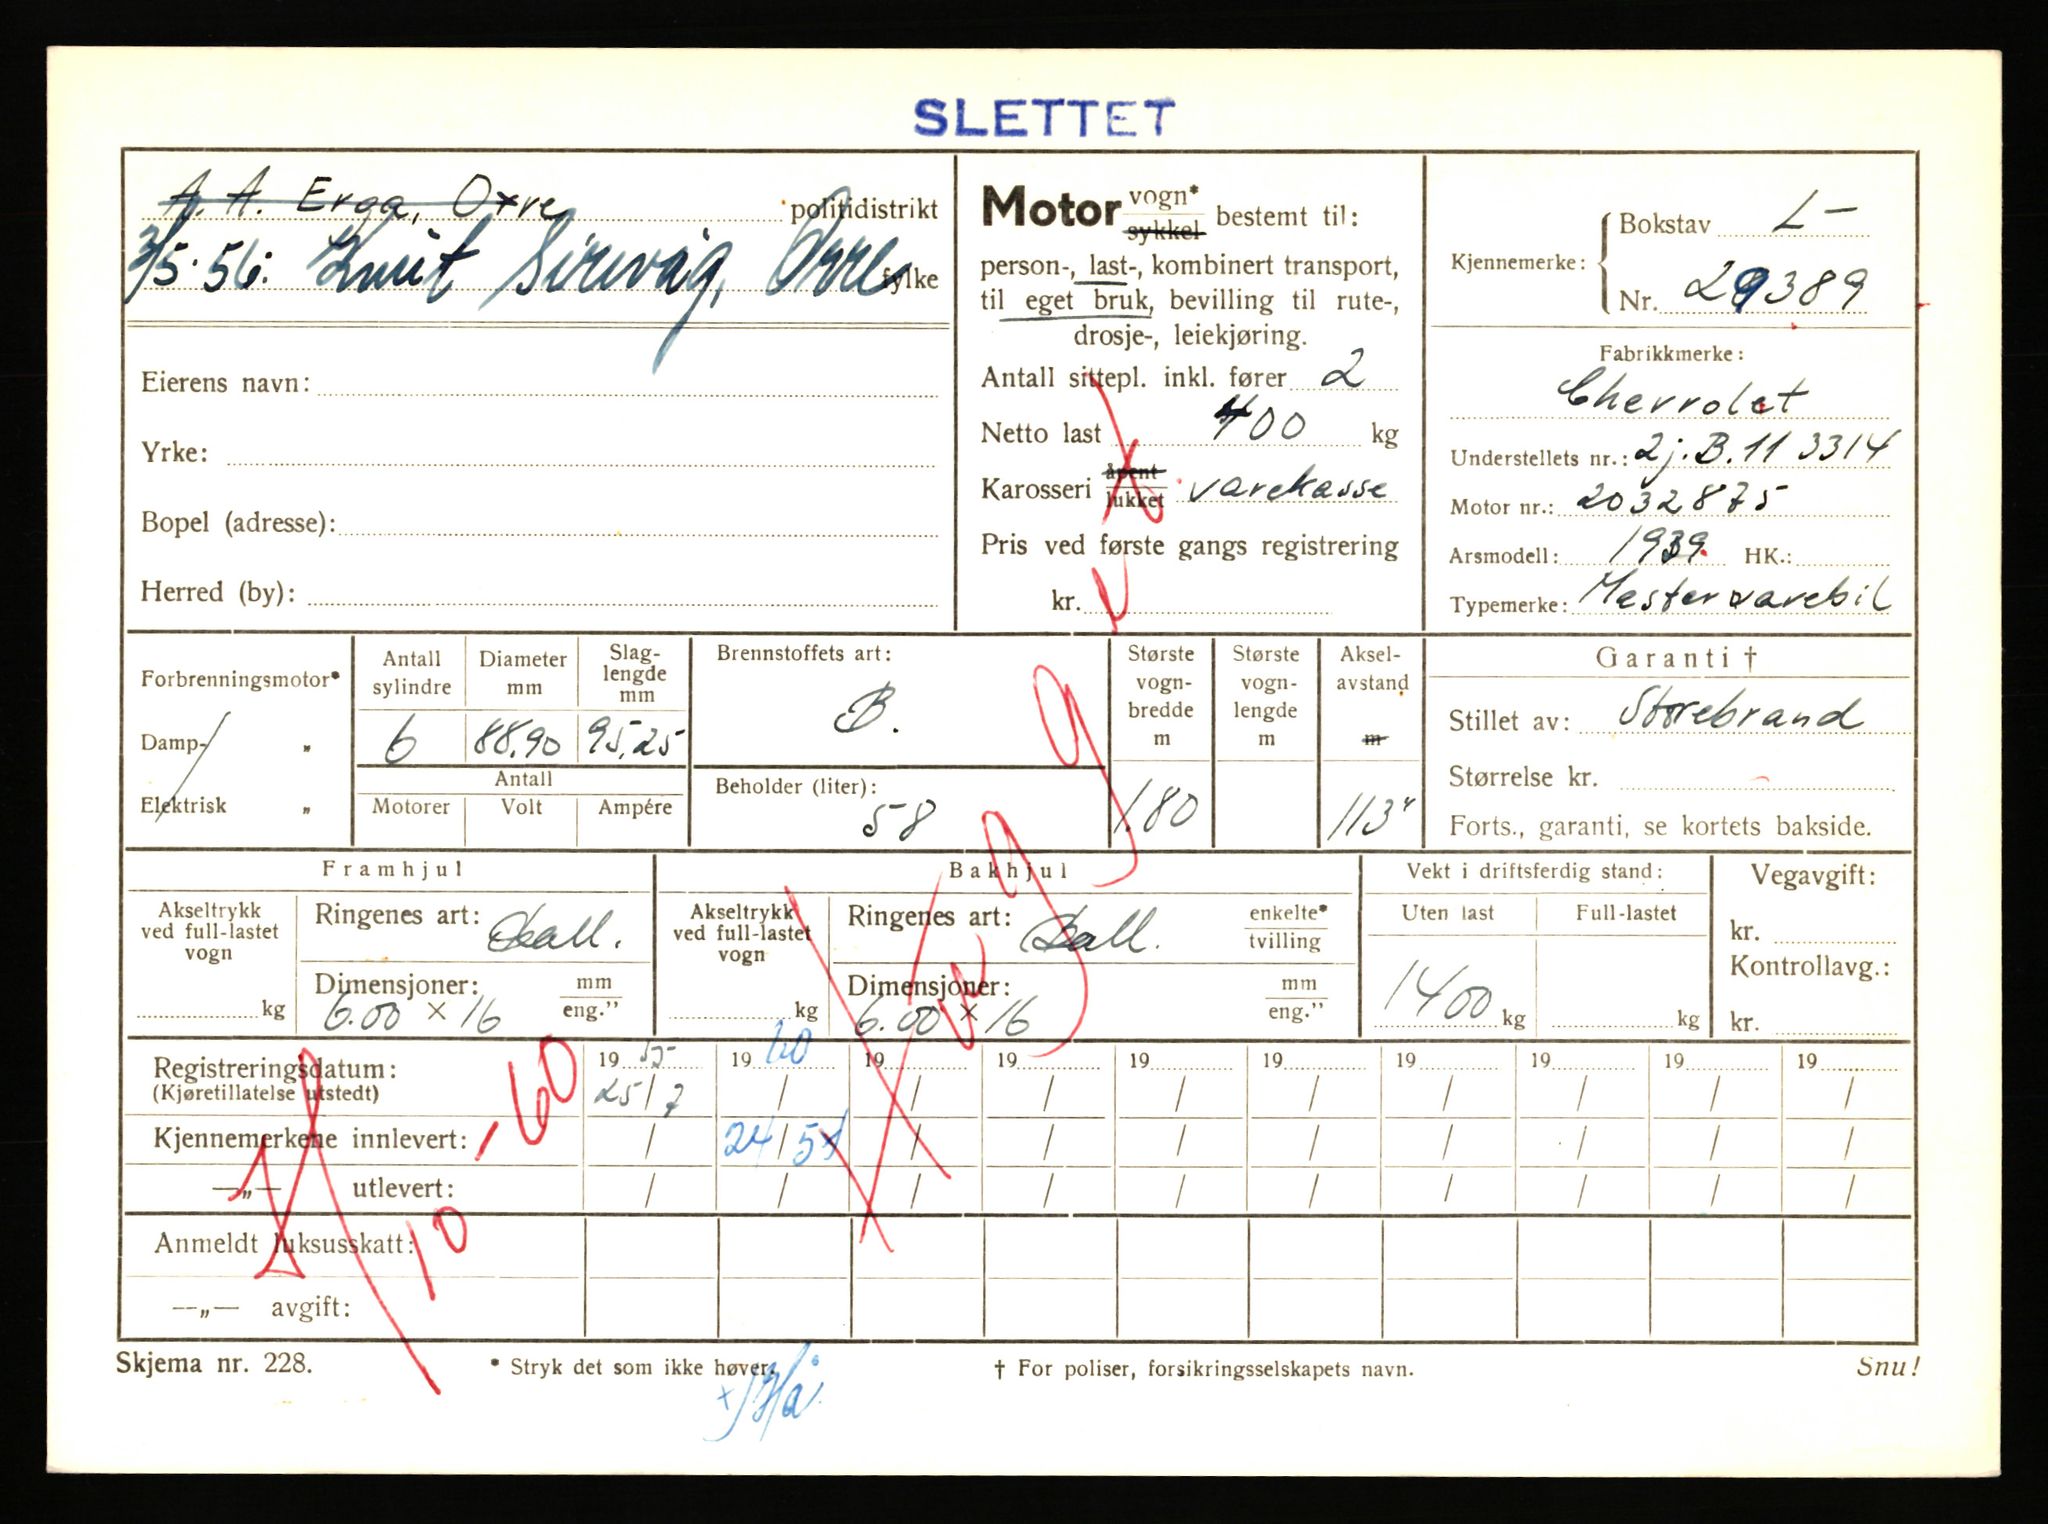 SLETTET
A. A. Erga, Orre politidistrikt
3/5.56: Knut Sirevåg, Orre fylke
Eierens navn:
Yrke:
Bopel (adresse):
Herred (by):
Motor vogn* sykkel bestemt til:
person-, last-, kombinert transport,
til eget bruk, bevilling til rute-,
drosje-, leiekjøring.
Antall sittepl. inkl. fører 2
Netto last 400 kg
Karosseri åpent lukket varekasse
Pris ved første gangs registrering
kr.
Kjennemerke: Bokstav L-
Nr. 29389
Fabrikkmerke:
Chevrolet
Understellets nr.: 2j.B.11 3314
Motor nr.: 2032875
Årsmodell: 1939. HK.:
Typemerke: Mester varebil
Forbrenningsmotor*
Damp- „
Elektrisk „
Antall sylindre 6
Diameter mm 88,90
Slaglengde mm 95,25
Antall
Motorer Volt Ampére
Brennstoffets art:
B.
Beholder (liter):
58
Største vogn-bredde m 1.80
Største vogn-lengde m
Aksel-avstand m 113"
Garanti †
Stillet av: Storebrand
Størrelse kr.
Forts., garanti, se kortets bakside.
Framhjul
Akseltrykk ved full-lastet vogn
kg
Ringenes art: Ball.
Dimensjoner: mm eng."
6.00 × 16
Bakhjul
Akseltrykk ved full-lastet vogn
kg
Ringenes art: Ball. enkelte* tvilling
Dimensjoner: mm eng."
6.00 × 16
Vekt i driftsferdig stand:
Uten last Full-lastet
1400 kg kg
Vegavgift:
kr.
Kontrollavg.:
kr.
Registreringsdatum: 19 55 19 60 19 19 19 19 19 19 19 19
(Kjøretillatelse utstedt) 25/7 / / / / / / / / /
Kjennemerkene innlevert: / 24/5 / / / / / / / /
—„— utlevert: / / / / / / / / / /
Anmeldt luksusskatt:
—„— avgift:
10-60
Skjema nr. 228.
* Stryk det som ikke høver.
† For poliser, forsikringsselskapets navn.
Snu!